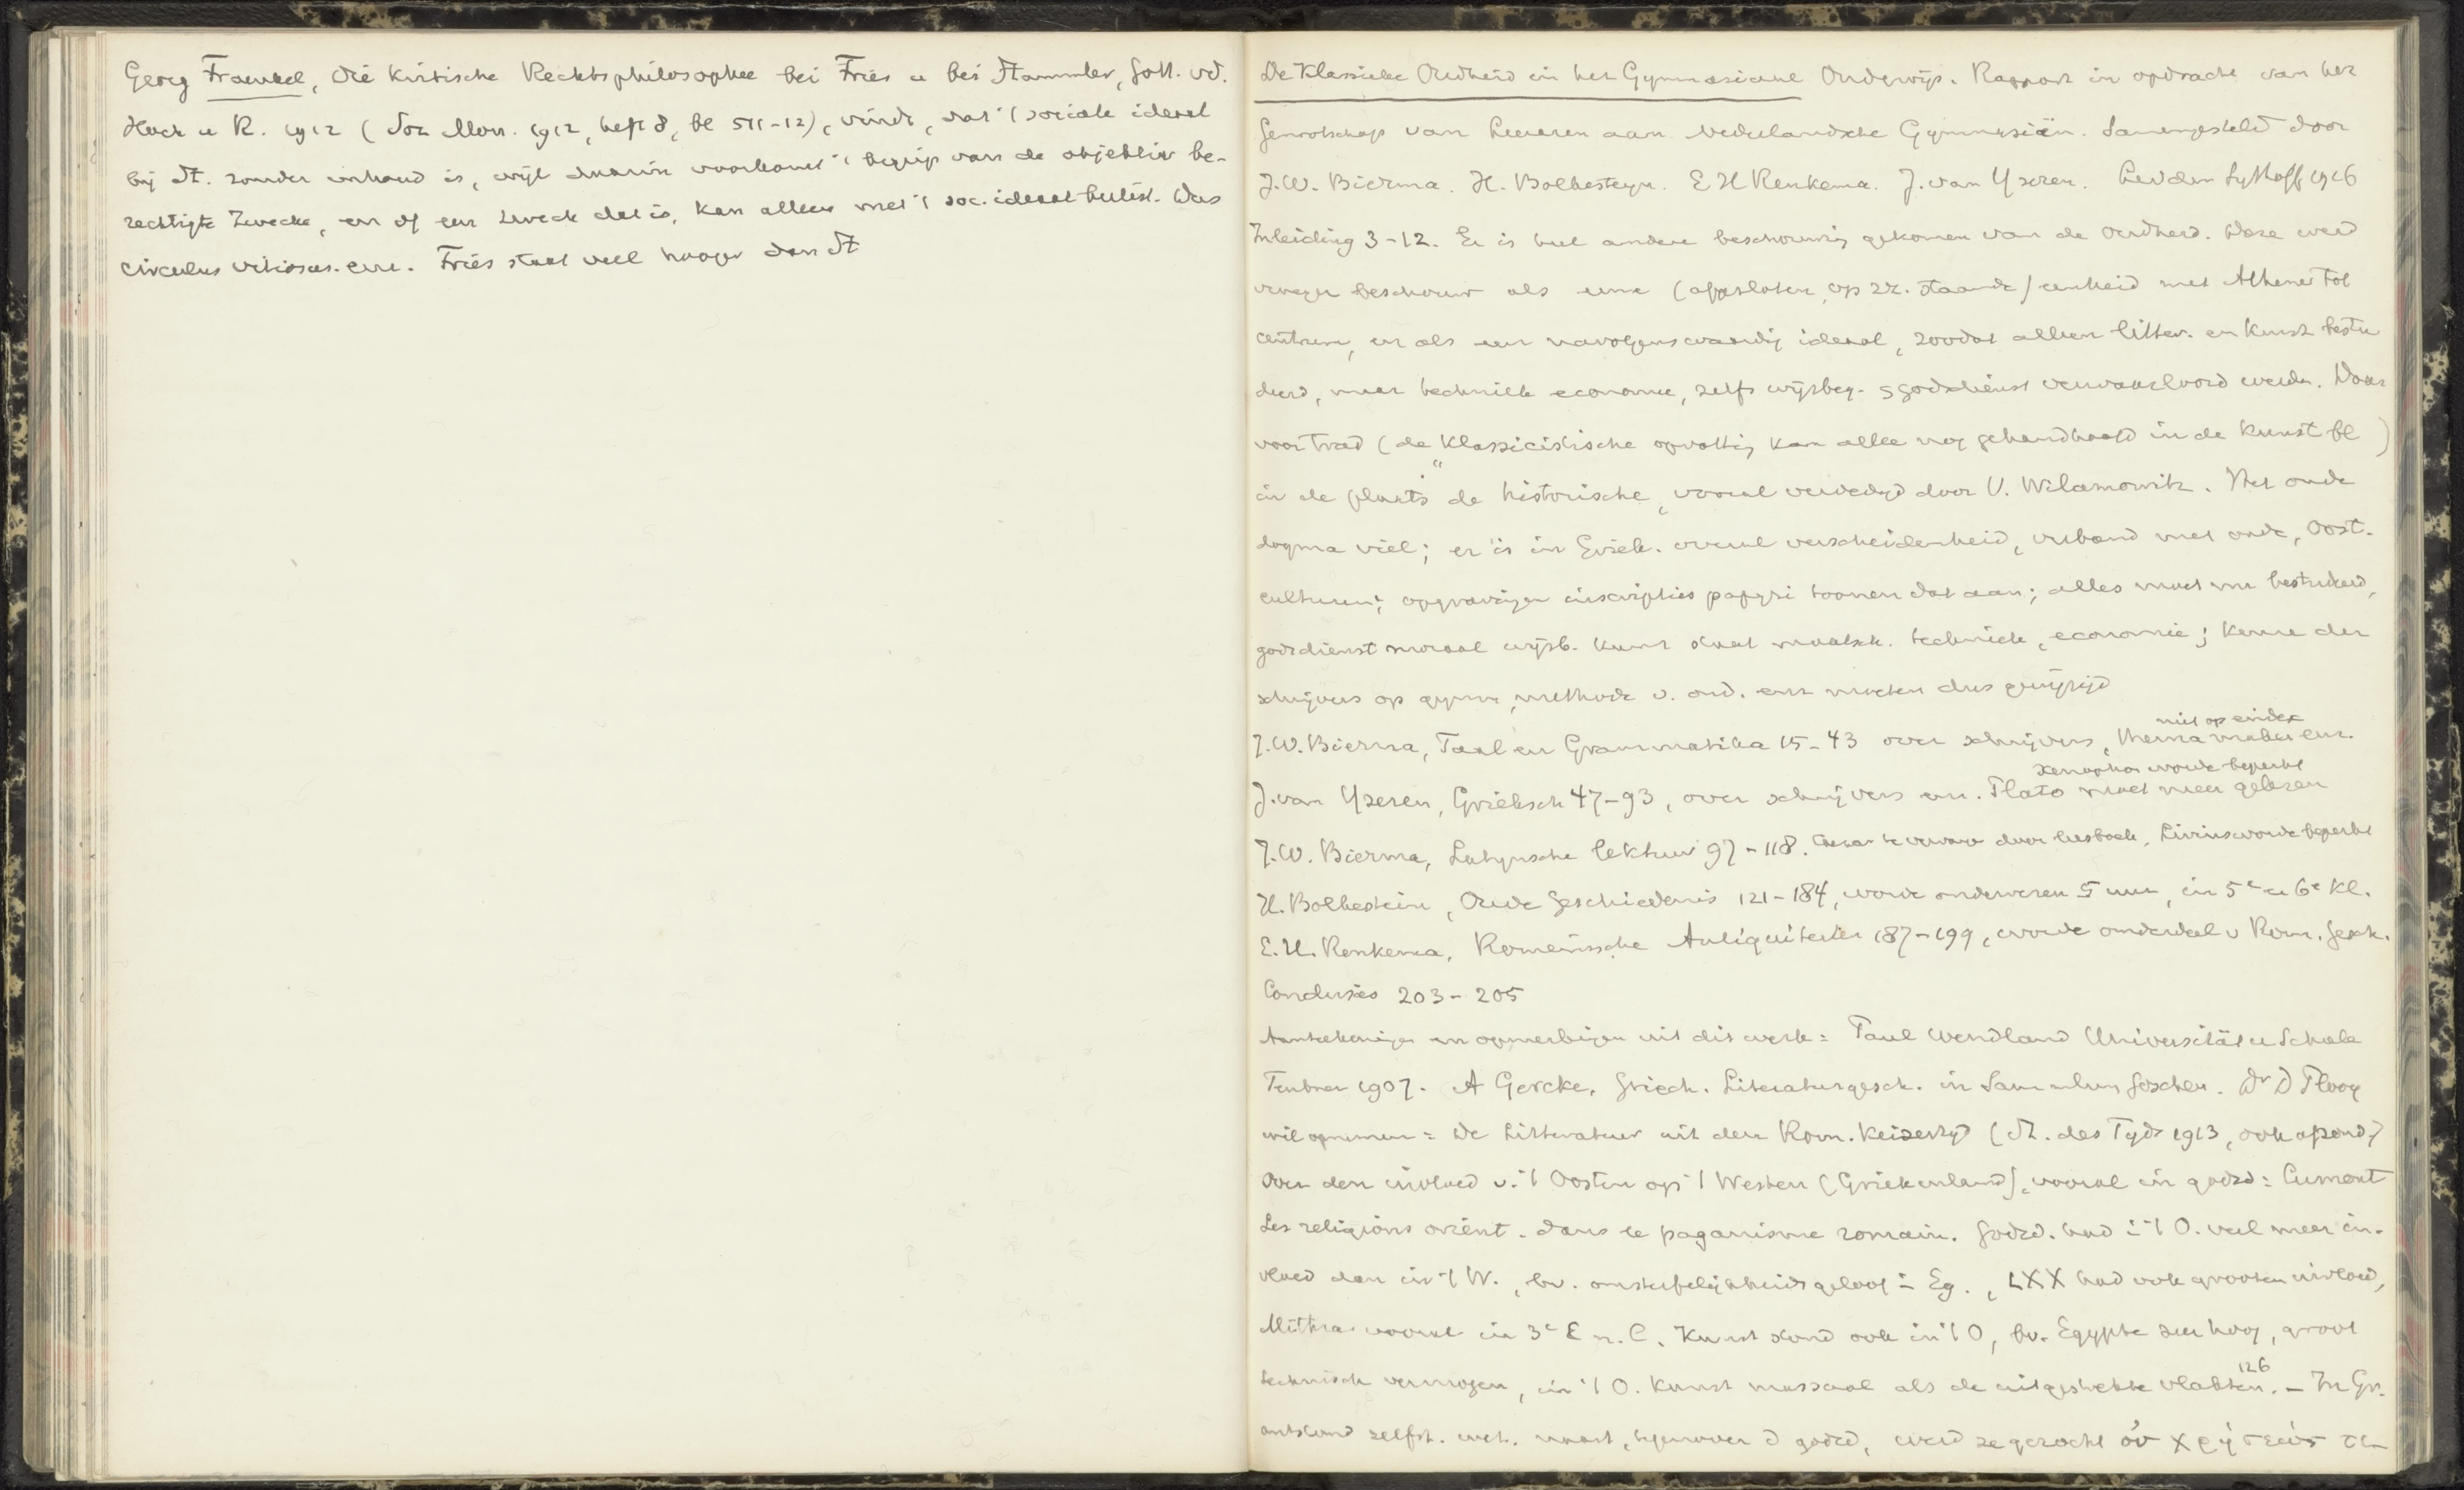 Georg Fraenkel, Die Kritische Rechtsphilosophie bei Fries u bei Stammler, Gött. Vd.
Hoek u R. 1912 (Soz Mon. 1912, heft 8, bl 511-12), vindt, dat 't sociale ideaal
bij St. zonder inhoud is, wijl daarin voorkomt 't begrip van de objektiv be-
rechtigte Zwecke, en of een zweck dat is, kan alleen met 't soc. ideaal beslist. Dus
circulus vitiosus. enz. Fries staat veel hooger dan St
De Klassieke Oudheid in het Gymnasiaal Onderwijs. Rapport in opdracht van het
Genootschap van Leeraren aan Nederlandsche Gymnasiën. Samengesteld door
J.W. Bierma. H. Bolkesteyn. E H Renkema. J. van Yzeren. Leiden Sythoff 1916
Inleiding 3-12. Er is heel andere beschouwing gekomen van de Oudheid. Deze werd
vroeger beschouwd als eene (afgesloten, op zz. staande) eenheid met Athene tot
centrum, en als een navolgenswaardig ideaal, zoodat alleen litter. en Kunst bestu
deerd, maar techniek economie, zelfs wijsbeg. & godsdienst verwaarloosd werden. Daar
voor trad (de klassicistische opvatting kan allee nog gehandhaafd in de Kunst bl )
in de plaats de historische, vooral verdedigd door V. Wilamowitz. Het oude
dogma viel; er is in Griek. overal verscheidenheid, verband met oude, Oost.
culturen; opgravingen inscripties papyri toonen dat aan; alles moet nu bestudeerd,
godsdienst moraal wijsb. kunst staat maatsch. techniek, economie; keuze der
schrijvers op gymn, methode v. ond. enz moeten dus gewijzigd
niet op eindex
J.W. Bierma, Taal en Grammatika 15-43 over schrijvers, thema maken enz.
Xenophon worde beperkt
J. van Yzeren, Grieksch 47-93, over schrijvers enz. Plato moet meer gelezen
J.W. Bierma, Latijnsche lektuur 97-118. Caesar te vervang door leesboek, Livius worde beperkt
H. Bolkestein, Oude Geschiedenis 121-184, worde onderwezen 5 uur, in 5e en 6e Kl.
E.H. Renkema, Romeinsche Antiquiteiten 187-199, worde onderdeel v Rom. Gesch.
Conclusies 203-205
Aanteekeningen en opmerkingen uit dit werk: Paul Wendland Universität u Schule
Teubner 1907. A Gercke, Griech. Literaturgesch. in Sammlung Göschen. Dr D Plooy
wil opnemen: De Litteratuur uit den Rom. Keizertijd (St. des Tyds 1913, ook afzond.)
Over den invloed v. 't Oosten op 't Westen (Griekenland), vooral in godsd: Cumont
Les religions orient. dans le paganisme romain. Godsd. had in 't O. veel meer in-
vloed dan in 't W., bv. onsterfelijkheidsgeloof in Eg., LXX had ook grooten invloed,
Mithra vooral in 3e E n. C. Kunst stond ook in 't O, bv. Egypte zeer hoog, groot
126
technisch vermogen, in 't O. kunst massaal als de uitgestrekte vlakten. - In Gr.
ontstond zelfst. wet. naast, tegenover d godsd, werd ze gezocht οὐ χρήσεώς τι-